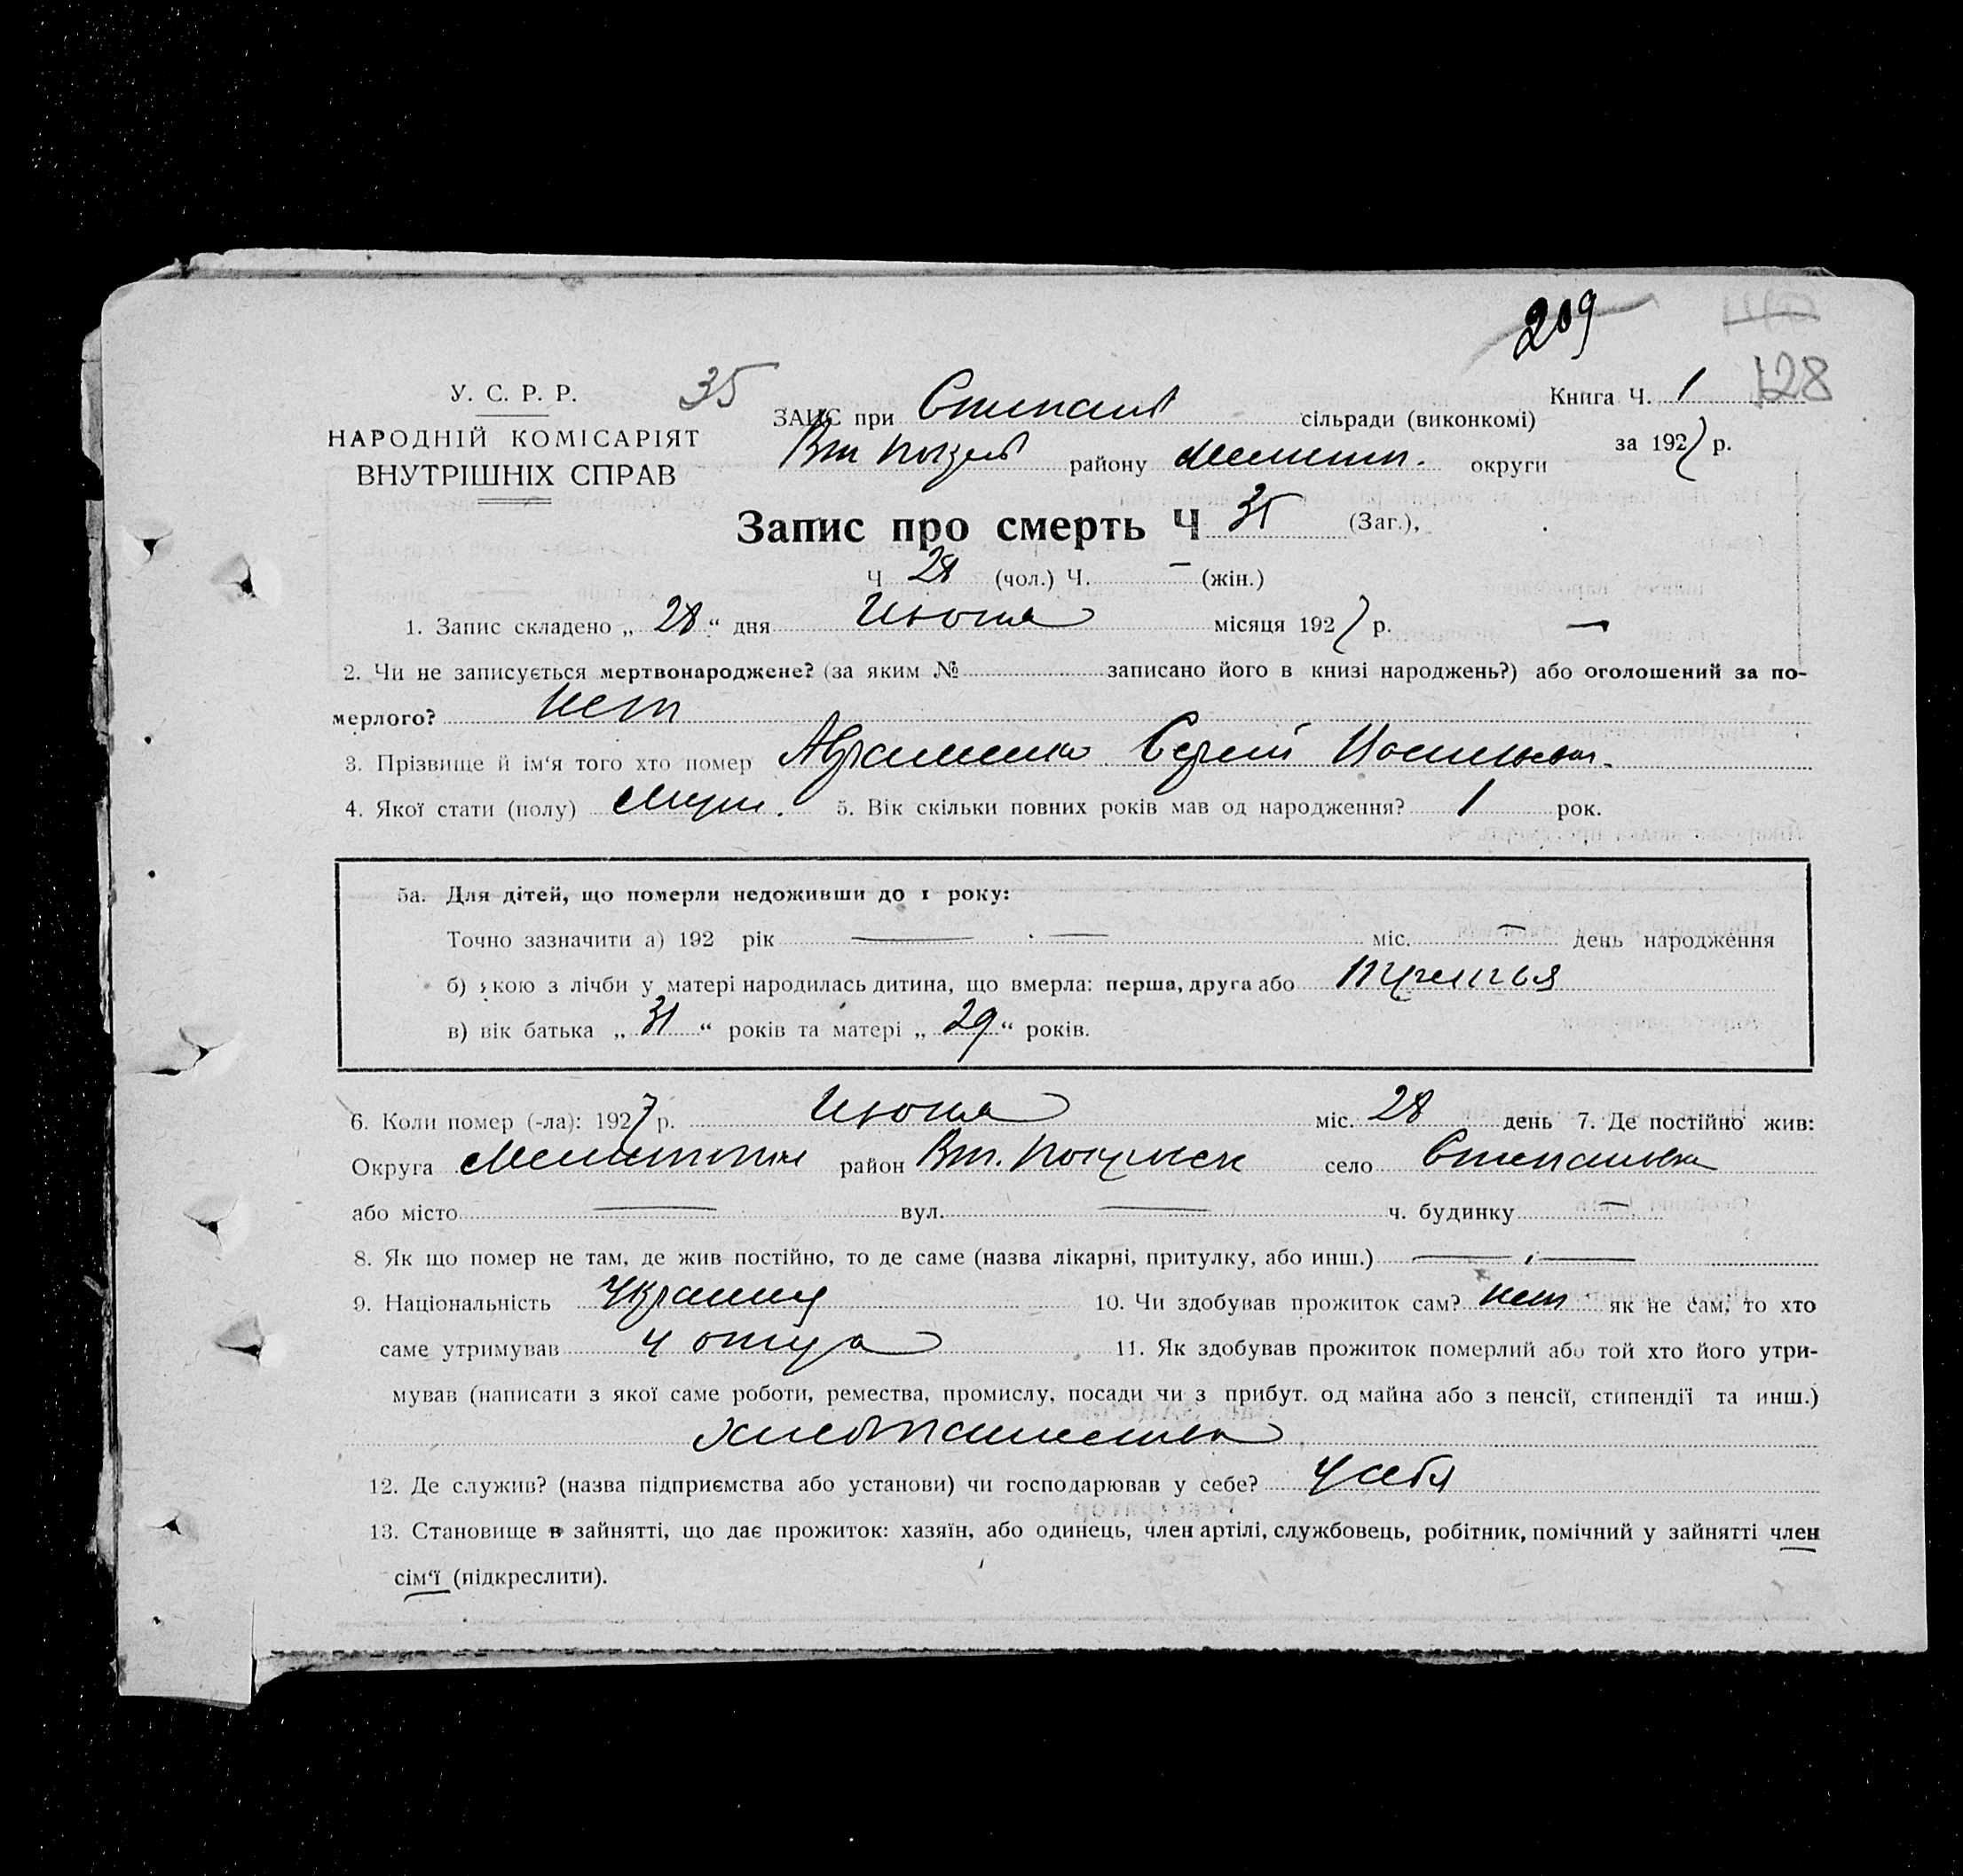 209
128
У. С. Р. Р.
35
ЗАГС при Степанів сільради (виконкомі)
Книга Ч. 1
НАРОДНІЙ КОМІСАРІЯТ
ВНУТРІШНІХ СПРАВ
району Мелитоп. округи
за 1927 р.
Запис про смерть Ч 35 (Заг.),
Ч 28 (чол.) Ч. — (жін.)
1. Запис складено „ 28 “ дня Июня місяця 1927 р. —
2. Чи не записується мертвонароджене? (за яким № записано його в книзі народжень?) або оголошений за по-
мерлого? нет
3. Прізвище й ім‘я того хто помер Авраменко Сергій
4. Якої стати (полу) Муж. 5. Вік скільки повних років мав од народження? 1 рок.
5а. Для дітей, що померли недоживши до 1 року:
Точно зазначити а) 192 рік — — міс. — день народження
б) якою з лічби у матері народилась дитина, що вмерла: перша, друга або
в) вік батька „ 31 “ років та матері „ 29 “ років.
6. Коли помер (-ла): 1927 р. Июня міс. 28 день 7. Де постійно жив:
Округа район село Степановка
або місто — вул. — ч. будинку —
8. Як що помер не там, де жив постійно, то де саме (назва лікарні, притулку, або инш.) — , —
9. Національність 10. Чи здобував прожиток сам? нет як не сам, то хто
саме утримував у отца 11. Як здобував прожиток померлий або той хто його утри-
мував (написати з якої саме роботи, ремества, промислу, посади чи з прибут. од майна або з пенсії, стипендії та инш.)
хлебопашество
12. Де служив? (назва підприємства або установи) чи господарював у себе? у себя
13. Становище в зайнятті, що дає прожиток: хазяїн, або одинець, член артілі, службовець, робітник, помічний у зайнятті член
сім‘ї (підкреслити).